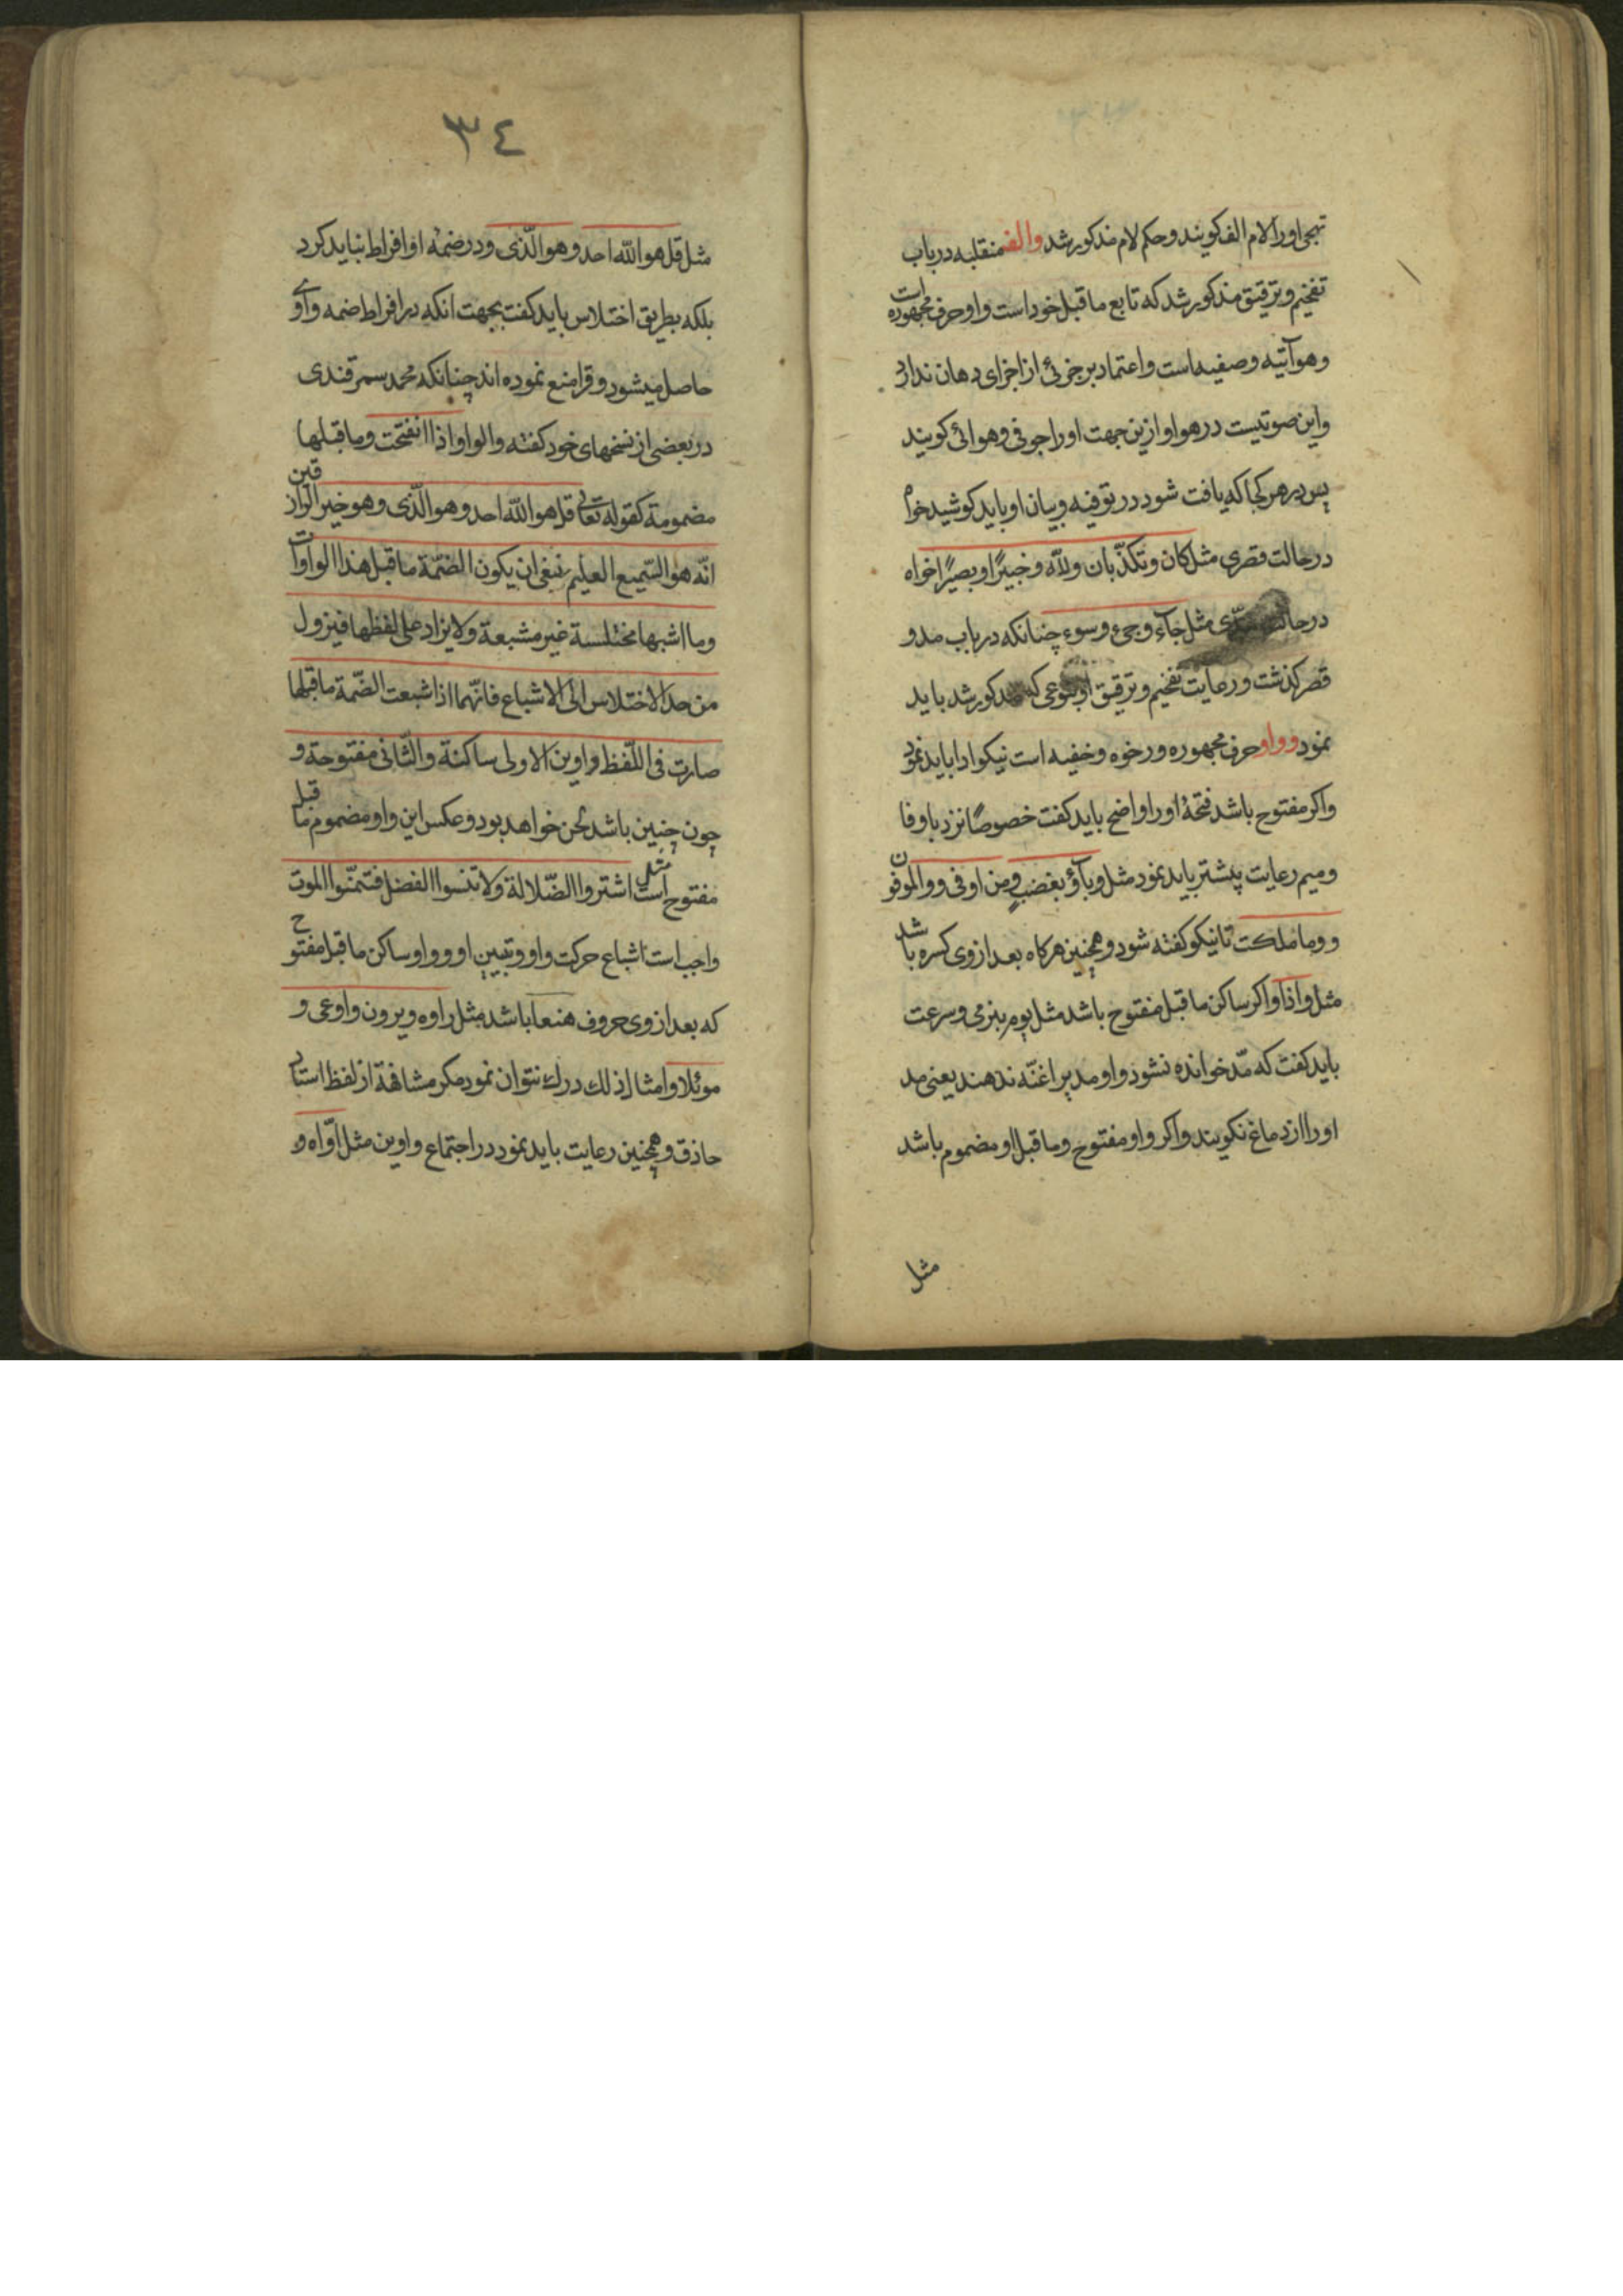 تهجی اورا لام الف کویند و حکم لام مذکور شد والف منقلبه در باب
تفخیم و ترقیق مذکور شد که تابع ماقبل خود است و او حرف مجهوره است
و هوآئیه و صفیه است و اعتماد بر جزئی از اجزای دهان ندارد
و این صوتیست در هوا و ازین جهت اورا جوفی و هوائی کویند
پس در هر کجا که یافت شود در توفیه و بیان او باید کوشید خواه
در حالت قصری مثل کان و تکذّبان و للّه و خبیرًا و بصیرًا خواه
در حالت مدّی مثل جآء و جیء و سوء چنانکه در باب مد و
قصر کذشت و رعایت تفخیم و ترقیق او بنوعی که مذکور شد باید
نمود و واو حرف مجهوره و رخوه و خفیه است نیکو ادا باید نمود
و اکر مفتوح باشد فتحهٔ اورا واضح باید کفت خصوصًا نزد با و فا
و میم رعایت پیشتر باید نمود مثل وبآؤ بغضبٍ و من اوفی و والموفون
و وما ملکت تا نیکو کفته شود و همچنین هرکاه بعد از وی کسره باشد
مثل واذا و اکر ساکن ماقبل مفتوح باشد مثل یوم بنرمی و سرعت
باید کفت که مدّ خوانده نشود و او مد پر اغنّه ندهند یعنی مد
اورا از دماغ نکویند و اکر واو مفتوح و ماقبل او مضموم باشد
مثل
٣٤
مثل قل هو اللّه احد و هو الّذی و در ضمهٔ او افراط نباید کرد
بلکه بطریق اختلاس باید کفت بجهت انکه در افراط ضمه واوی
حاصل میشود و قرا منع نموده اند چنانکه محمد سمرقندی
در بعضی از نسخهای خود کفته والواو اذا انفتحت وما قبلها
مضمومة کقوله تعالی قل هو اللّه احد وهو الّذی وهو خیر الرازقین
انّه هو السّمیع العلیم ینبغی ان یکون الضّمّة ماقبل هذا الواوات
وما اشبهها مختلسة غیر مشبعة ولا یزاد علی لفظها فیزول
من حد الاختلاس الی الاشباع فانّهما اذا اشبعت الضّمة ماقبلها
صارت فی اللّفظ واوین الاولی ساکنة والثّانی مفتوحة و
چون چنین باشد لحن خواهد بود و عکس این واو مضموم ماقبل
مفتوح است مثل اشتروا الضّلالة ولا تنسوا الفضل فتمنّوا الموت
واجب است اشباع حرکت واو و تبیین او و واو ساکن ماقبل مفتوح
که بعد از وی حروف هنعا باشد مثل راوه و یرون و اوعی و
موئلا و امثال ذلك درك نتوان نمود مکر مشافهة از لفظ استاد
حاذق و همچنین رعایت باید نمود در اجتماع واوین مثل اوّاه و